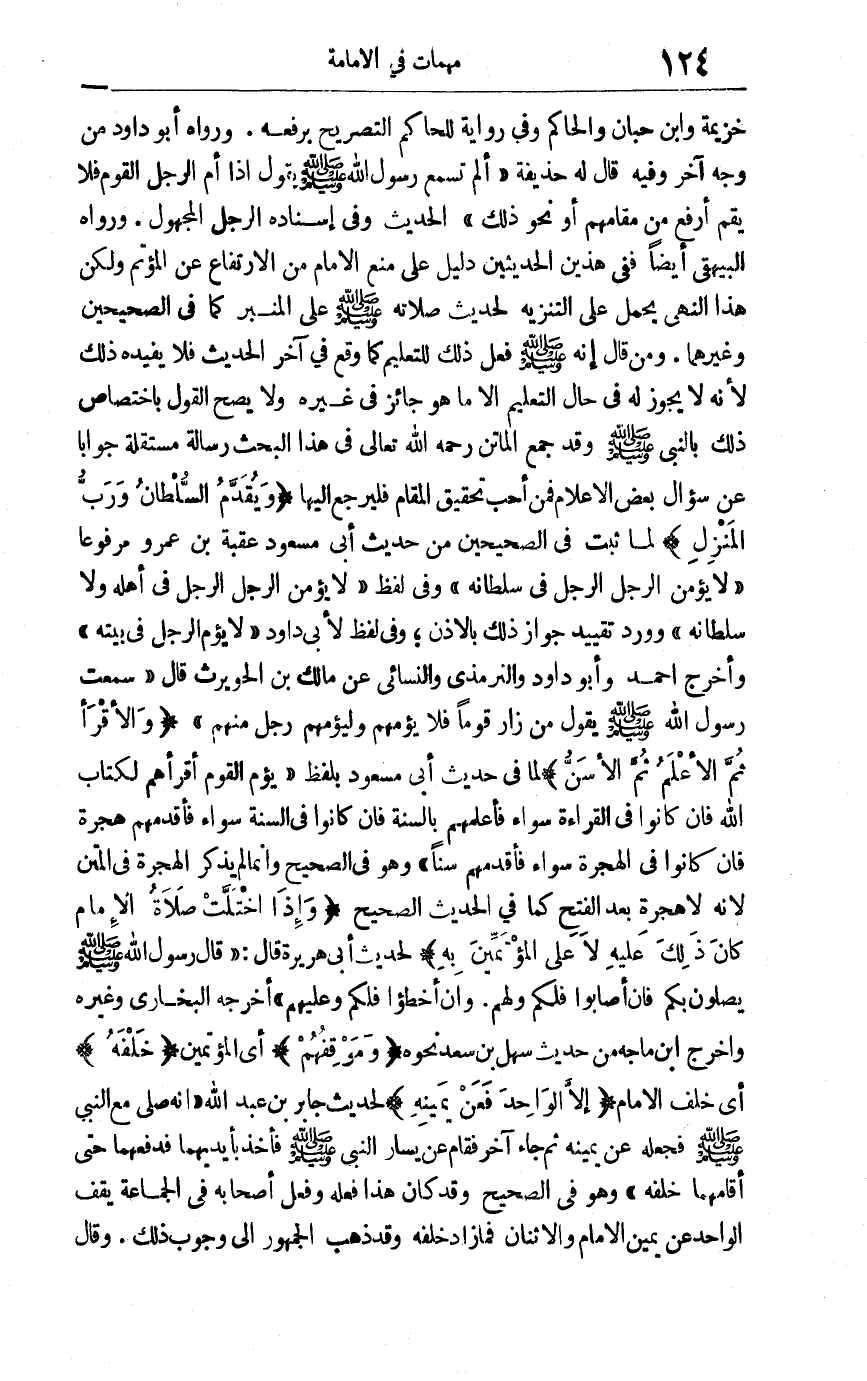 ١٢٤ مهمات في الامامة
خزيمة وابن حبان والحاكم وفي رواية للحاكم التصريح برفعه . ورواه أبو داود من
وجه آخر وفيه قال له حذيفة « ألم تسمع رسول الله ﷺ يقول اذا أم الرجل القوم فلا
يقم أرفع من مقامهم أو نحو ذلك » الحديث وفى إسناده الرجل المجهول . ورواه
البيهقى أيضاً ففى هذين الحديثين دليل على منع الامام من الارتفاع عن المؤتم ولكن
هذا النهى يحمل على التنزيه لحديث صلاته ﷺ على المنبر كما فى الصحيحين
وغيرهما . ومن قال إنه ﷺ فعل ذلك للتعليم كما وقع في آخر الحديث فلا يفيده ذلك
لأنه لا يجوز له فى حال التعليم الا ما هو جائز فى غيره ولا يصح القول باختصاص
ذلك بالنبى ﷺ وقد جمع الماتن رحمه الله تعالى فى هذا البحث رسالة مستقلة جوابا
عن سؤال بعض الاعلام فمن أحب تحقيق المقام فليرجع اليها ﴿ وَيُقَدَّمُ السُّلْطَانُ وَرَبُّ
المَنْزِلِ ﴾ لما ثبت فى الصحيحين من حديث أبى مسعود عقبة بن عمرو مرفوعا
« لا يؤمن الرجل الرجل فى سلطانه » وفى لفظ « لا يؤمن الرجل الرجل فى أهله ولا
سلطانه » وورد تقييد جواز ذلك بالاذن ؛ وفى لفظ لأبى داود « لا يؤم الرجل فى بيته »
وأخرج احمد وأبو داود والترمذى والنسائى عن مالك بن الحويرث قال « سمعت
رسول الله ﷺ يقول من زار قوماً فلا يؤمهم وليؤمهم رجل منهم » ﴿ وَالأَقْرَأ
ثُمَّ الأَعْلَمُ ثُمَّ الأَسَنُّ ﴾ لما فى حديث أبى مسعود بلفظ « يؤم القوم أقرأهم لكتاب
الله فان كانوا فى القراءة سواء فأعلمهم بالسنة فان كانوا فى السنة سواء فأقدمهم هجرة
فان كانوا فى الهجرة سواء فأقدمهم سناً » وهو فى الصحيح وانما لم يذكر الهجرة فى المتن
لانه لا هجرة بعد الفتح كما في الحديث الصحيح ﴿ وَإِذَا اخْتَلَّتْ صَلَاةُ الإِمام
كانَ ذَلِكَ عليهِ لاَ على المؤْتَمِّينَ بِهِ ﴾ لحديث أبى هريرة قال : « قال رسول الله ﷺ
يصلون بكم فان أصابوا فلكم ولهم . وان أخطؤا فلكم وعليهم » أخرجه البخارى وغيره
واخرج ابن ماجه من حديث سهل بن سعد نحوه ﴿ وَمَوْقِفُهُمْ ﴾ أى المؤتمين ﴿ خَلْفَهُ ﴾
أى خلف الامام ﴿ إلاَّ الوَاحِدَ فَعَنْ يَمينِهِ ﴾ لحديث جابر بن عبد الله « انه صلى مع النبي
ﷺ فجعله عن يمينه ثم جاء آخر فقام عن يسار النبى ﷺ فأخذ بأيديهما فدفعهما حتى
أقامهما خلفه » وهو فى الصحيح وقد كان هذا فعله وفعل أصحابه فى الجماعة يقف
الواحد عن يمين الامام والاثنان فما زاد خلفه وقد ذهب الجمهور الى وجوب ذلك . وقال